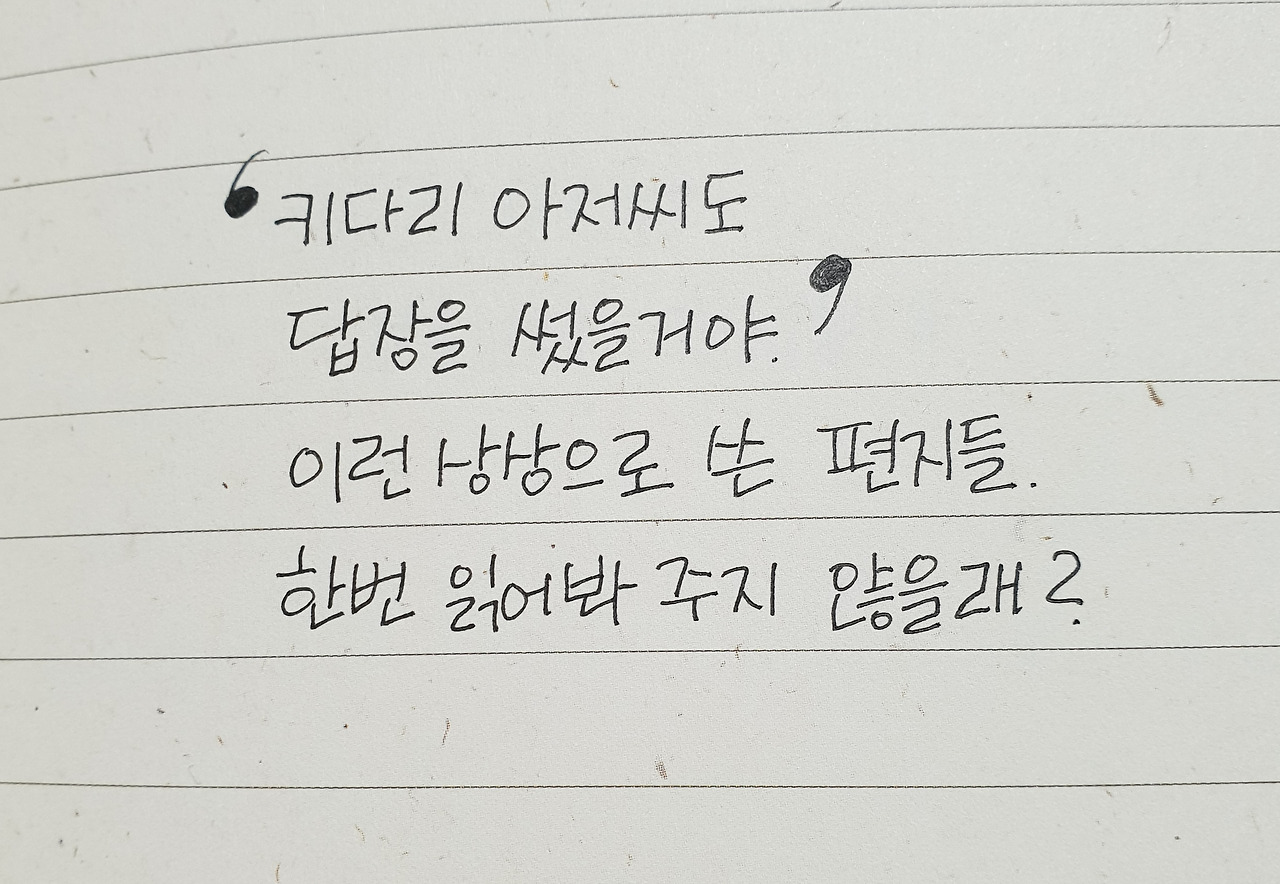 ‘키다리 아저씨도
답장을 썼을거야.’
이런 상상으로 쓴 편지들.
한번 읽어봐 주지 않을래?